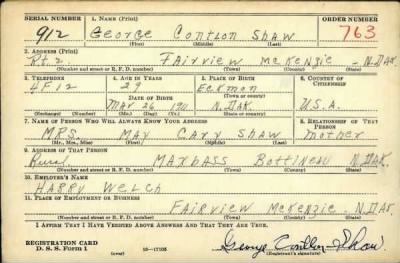 SERIAL NUMBER 1. NAME (Print) ORDER NUMBER
912 George Contlon Shaw 763
(First) (Middle) (Last)
2. ADDRESS (Print)
Rt. 2. FAIRVIEW McKENZIE - N.DAK.
(Number and street or R. F. D. number) (Town) (County) (State)
3. TELEPHONE 4. AGE IN YEARS 5. PLACE OF BIRTH 6. COUNTRY OF CITIZENSHIP
4F12 29 Eckman
DATE OF BIRTH (Town or county)
MAR 26 1911 N.DAK. U.S.A.
(Exchange) (Number) (Mo.) (Day) (Yr.) (State or country)
7. NAME OF PERSON WHO WILL ALWAYS KNOW YOUR ADDRESS 8. RELATIONSHIP OF THAT PERSON
MRS. MAY CARY SHAW Mother
(Mr., Mrs., Miss) (First) (Middle) (Last)
9. ADDRESS OF THAT PERSON
Rural. MAXBASS BOTTINEAU N.DAK.
(Number and street or R. F. D. number) (Town) (County) (State)
10. EMPLOYER'S NAME
HARRY WELCH
11. PLACE OF EMPLOYMENT OR BUSINESS
FAIRVIEW McKENZIE - N.DAK.
(Number and street or R. F. D. number) (Town) (County) (State)
I AFFIRM THAT I HAVE VERIFIED ABOVE ANSWERS AND THAT THEY ARE TRUE.
REGISTRATION CARD
D. S. S. Form 1 (over) 16-17105 George Contlon Shaw
(Registrant's signature)